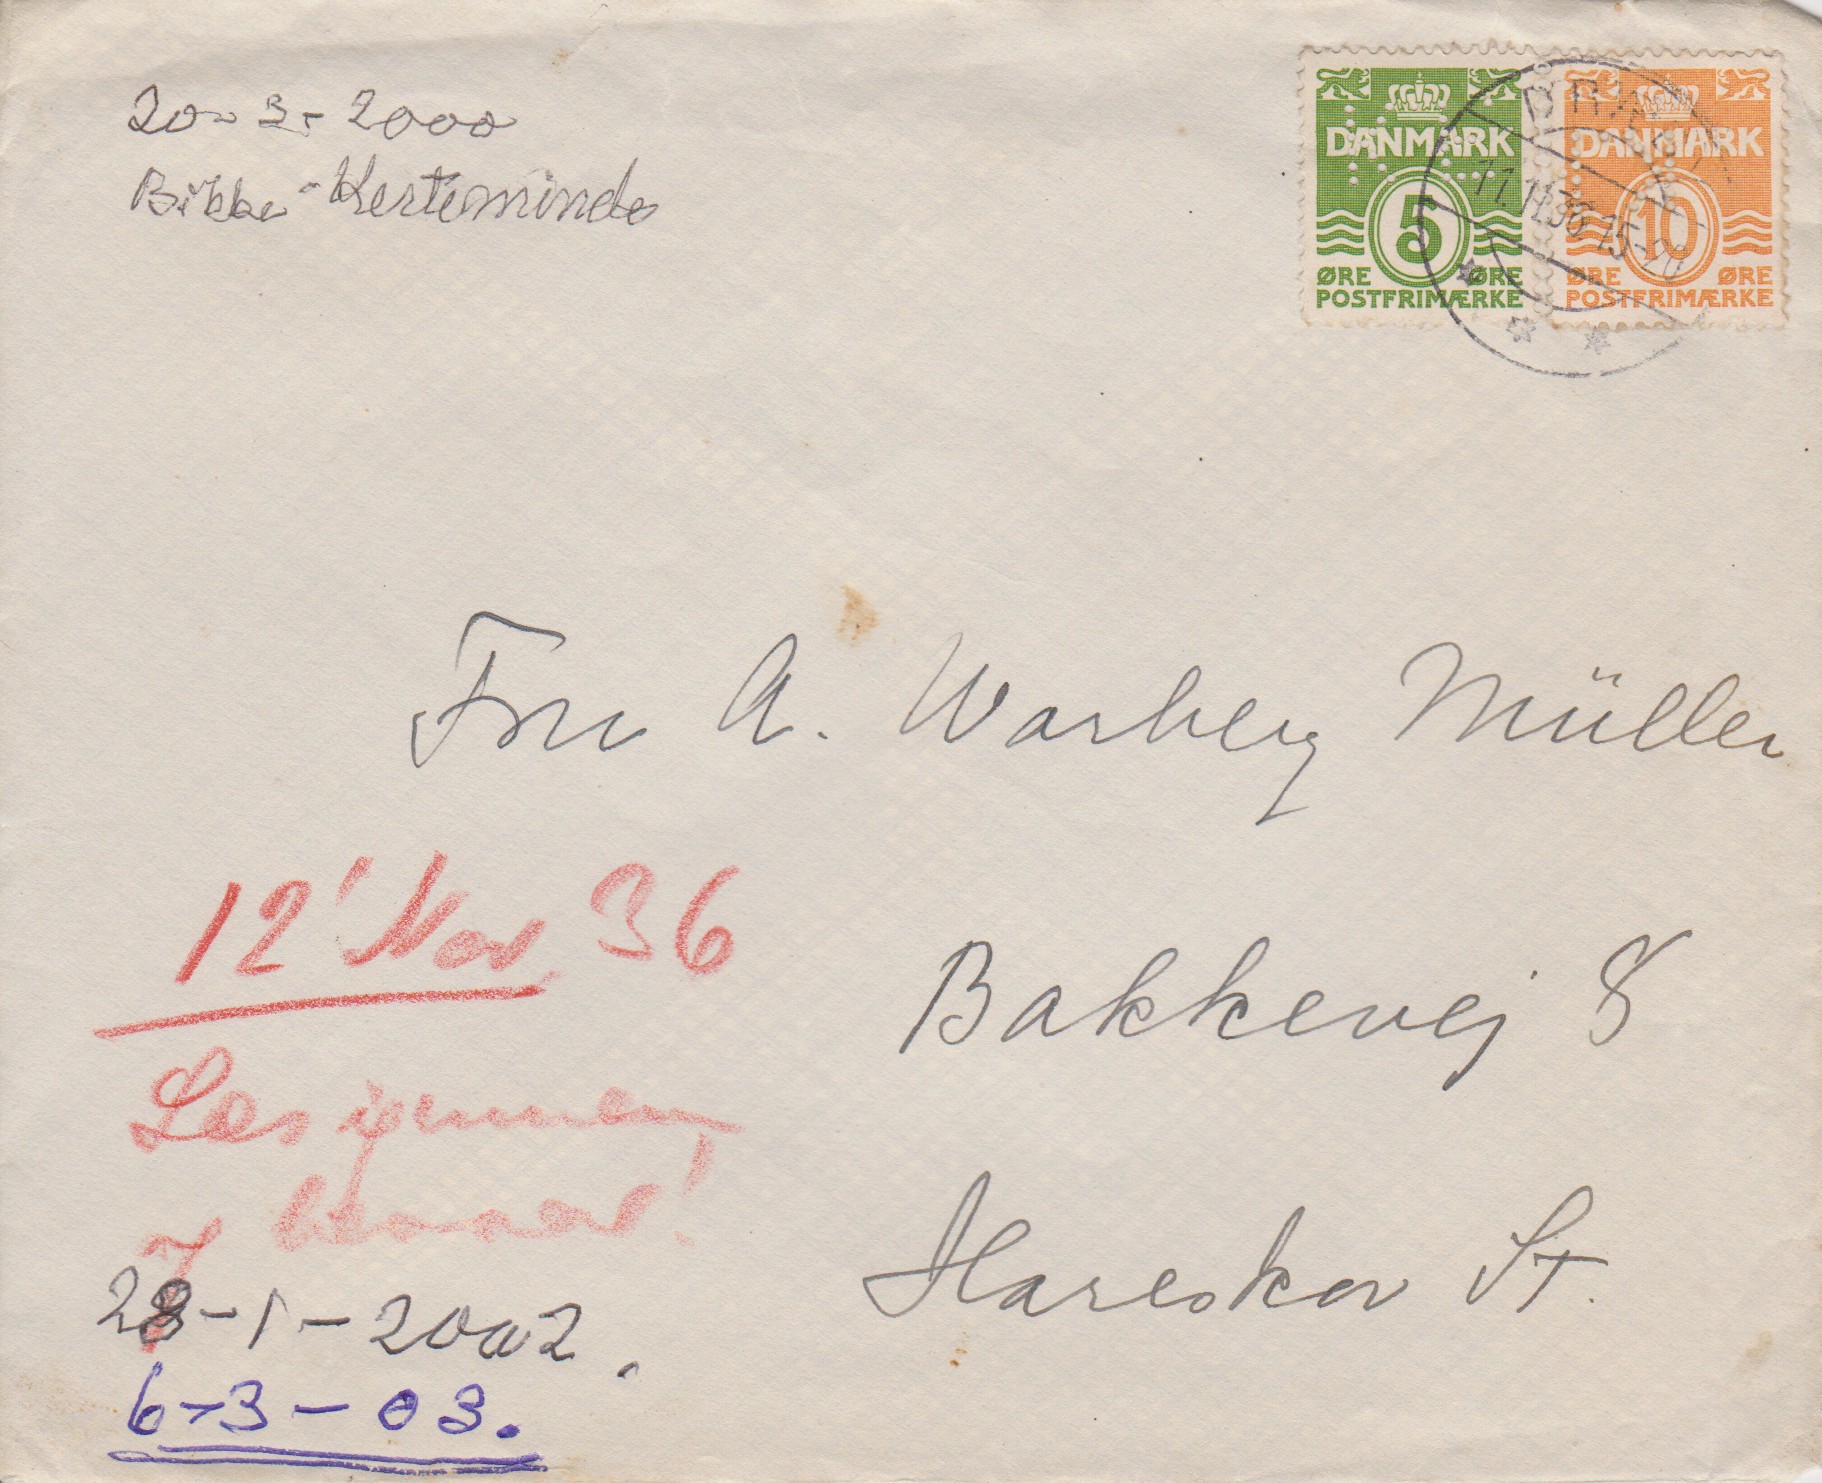 20-3-2000
Bikke-Kerteminde
DANMARK
5
ØRE ØRE
POSTFRIMÆRKE
DANMARK
10
ØRE ØRE
POSTFRIMÆRKE
11.11.36.15-20
Fru A. Warberg Müller
12' Nov 36
Bakkevej 8
Læs igennem
og bevar!
Hareskov St.
28-1-2002.
6-3-03.